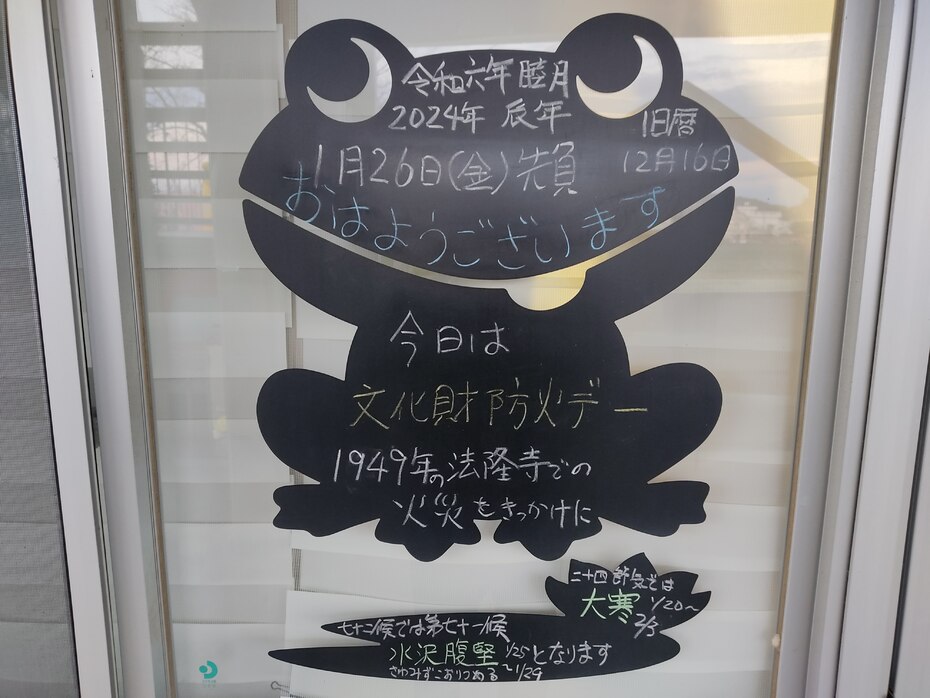 令和六年 睦月
2024年 辰年
旧暦
12月16日
1月26日(金)先負
おはようございます
今日は
文化財防火デー
1949年の法隆寺での
火災をきっかけに
二十四節気では
大寒 1/20～
2/3
七十二候では第七十一候
水沢腹堅 1/25となります
さわみずこおりつめる ～1/29